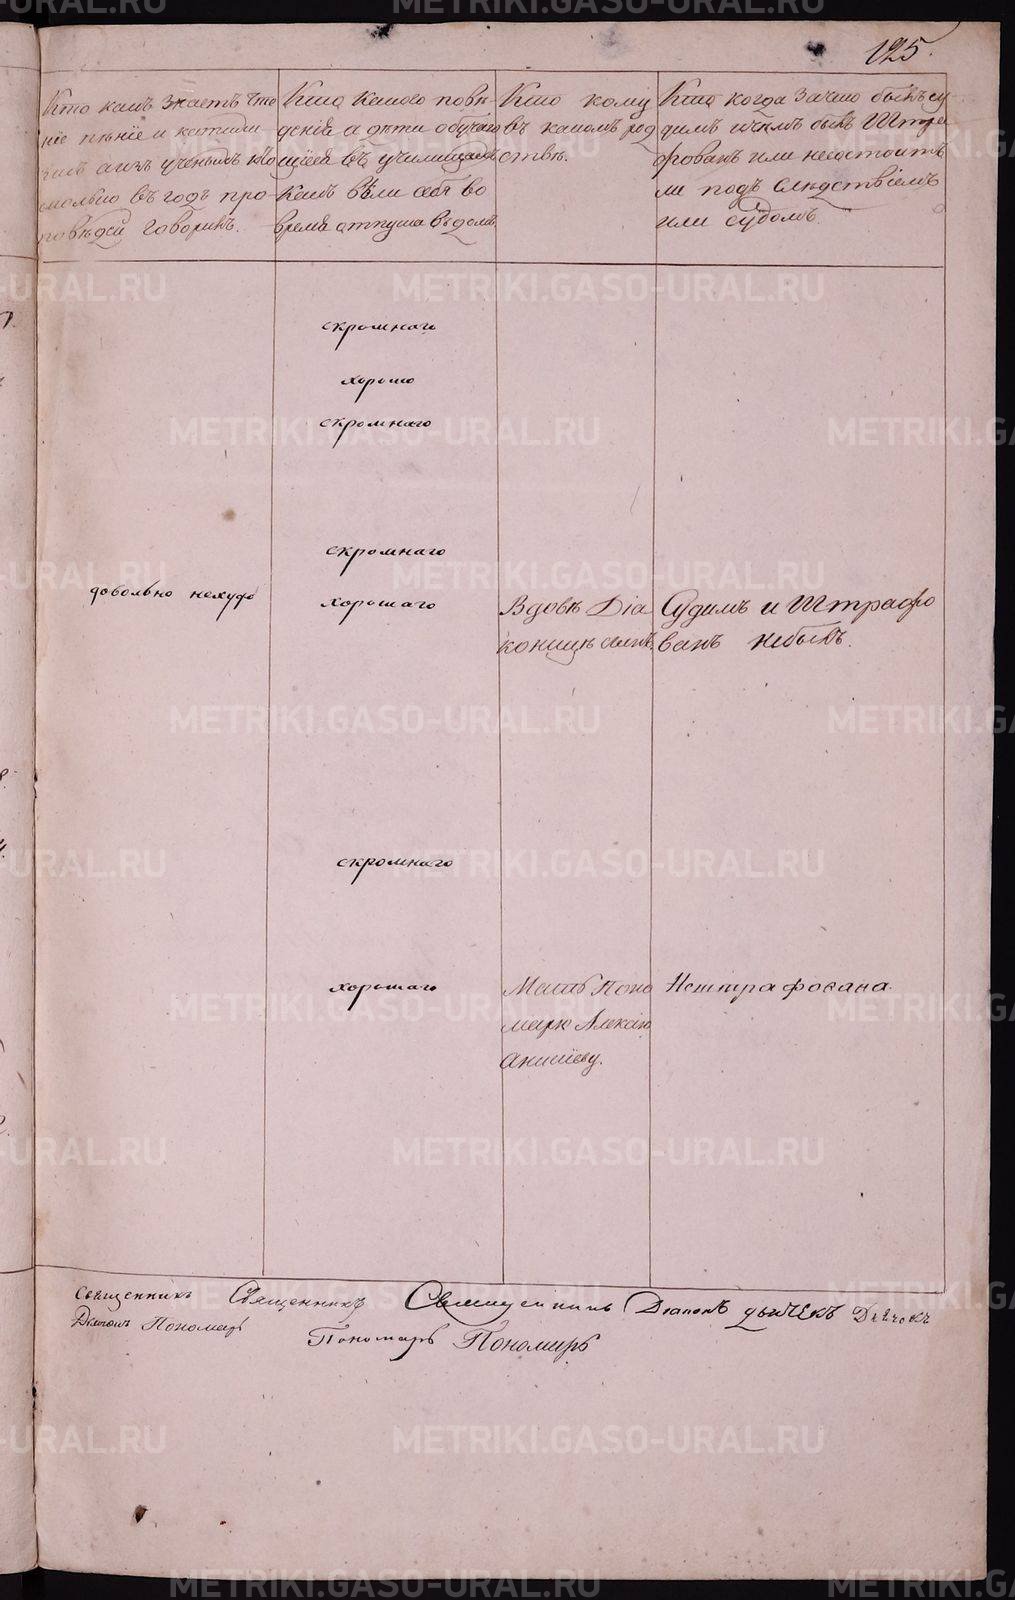 125.
Кто какъ знаетъ чте
ніе пѣніе и катихи
зисъ а изъ ученыхъ кто
сколько въ годъ про
повѣдей говорилъ.
Кто какого пове
денія а дѣти обучаю
щіеся въ училищахъ
какъ вели себя во
время отпуска въ домъ.
Кто кому
въ какомъ род
ствѣ.
Кто когда за что былъ су
димъ и чѣмъ былъ Штра
фованъ или не состоитъ
ли подъ слѣдствіемъ
или судомъ
скромнаго
хорошо
скромнаго
скромнаго
довольно нехудо
хорошаго
Вдовѣ Діа
коницѣ сынъ.
Судимъ и Штрафо
ванъ небылъ.
скромнаго
хорошаго
Мать Поно
марю Алексѣю
Нештрафована.
Священникъ Священникъ Священникъ Діаконъ дьячекъ Дьячокъ
Діаконъ Пономарь Пономарь Пономарь
METRIKI.GASO-URAL.RU